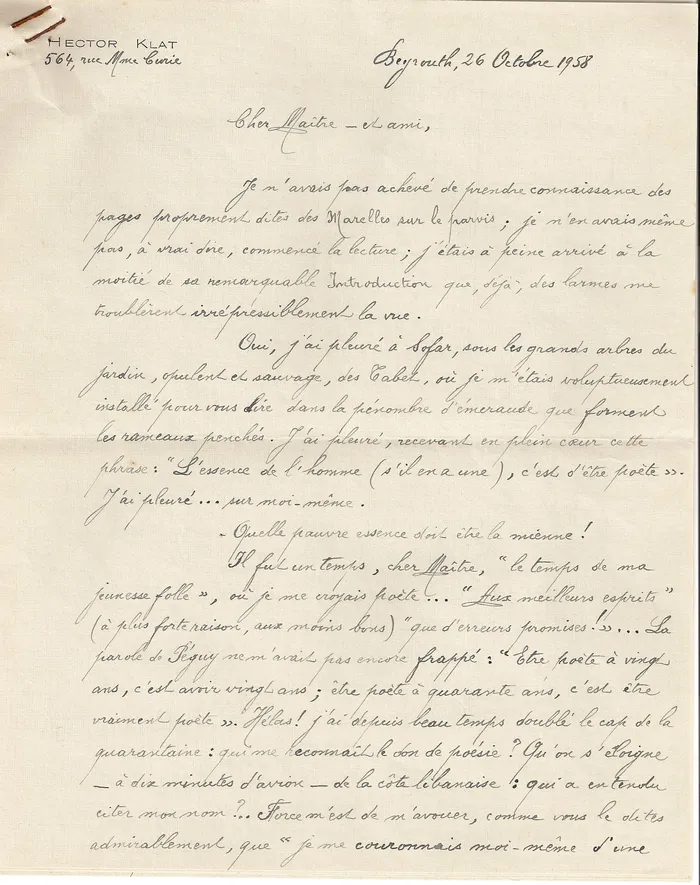 HECTOR KLAT
564, rue Mme Curie
Beyrouth, 26 Octobre 1958
Cher Maître – et ami,
Je n'avais pas achevé de prendre connaissance des
pages proprement dites des Marelles sur le parvis ; je n'en avais même
pas, à vrai dire, commencé la lecture ; j'étais à peine arrivé à la
moitié de sa remarquable Introduction que, déjà, des larmes me
troublèrent irrépressiblement la vue.
Oui, j'ai pleuré à Sofar, sous les grands arbres du
jardin, opulent et sauvage, des Tabet, où je m'étais voluptueusement
installé pour vous lire dans la pénombre d'émeraude que forment
les rameaux penchés. J'ai pleuré, recevant en plein cœur cette
phrase : "L'essence de l'homme (s'il en a une), c'est d'être poète ».
J'ai pleuré... sur moi-même.
- Quelle pauvre essence doit être la mienne !
Il fut un temps, cher Maître, "le temps de ma
jeunesse folle », où je me croyais poète... "Aux meilleurs esprits"
(à plus forte raison, aux moins bons) "que d'erreurs promises ! »... La
parole de Péguy ne m'avait pas encore frappé : "Etre poète à vingt
ans, c'est avoir vingt ans ; être poète à quarante ans, c'est être
vraiment poète ». Hélas ! j'ai depuis beau temps doublé le cap de la
quarantaine : qui me reconnaît le don de poésie ? Qu'on s'éloigne
– à dix minutes d'avion – de la côte libanaise : qui a entendu
citer mon nom ?.. Force m'est de m'avouer, comme vous le dites
admirablement, que "je me couronnais moi-même d'une